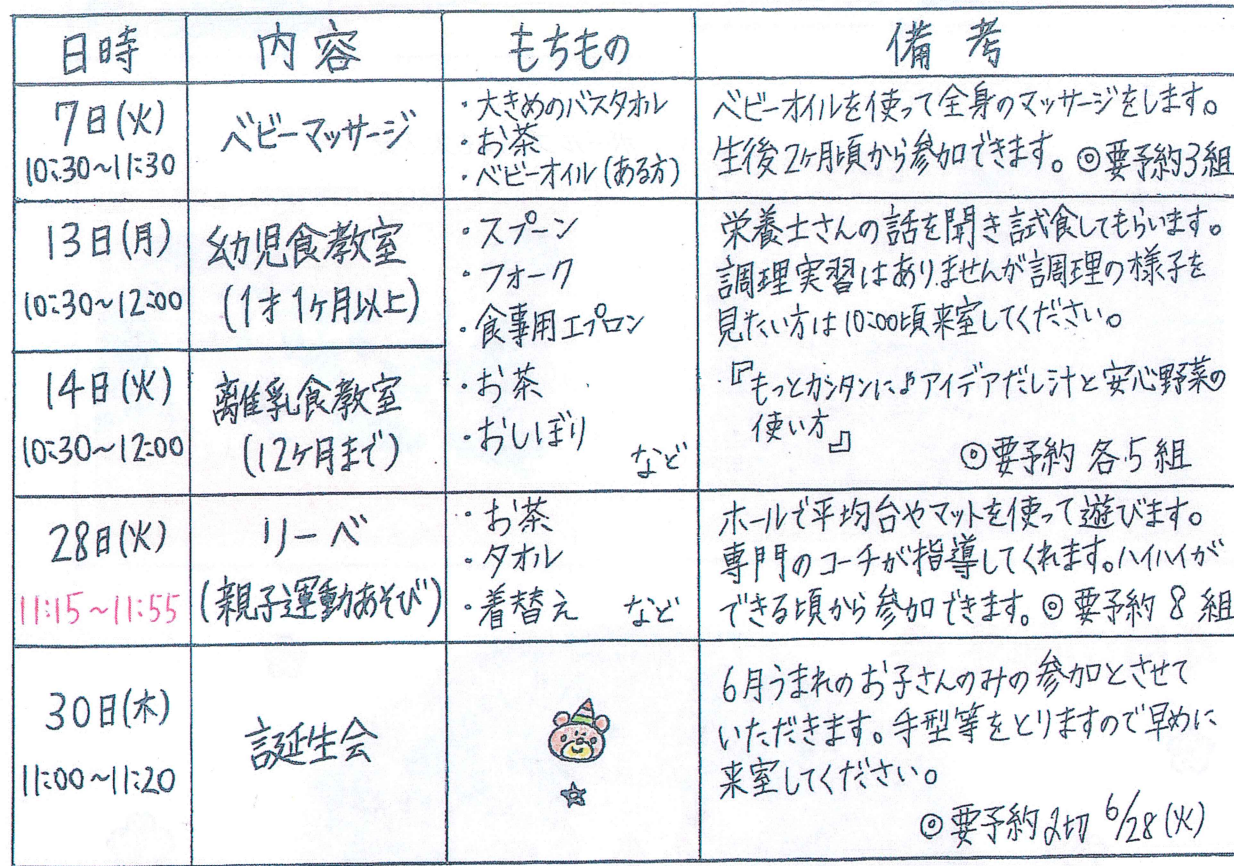 日時 内容 もちもの 備考
7日(火)
10:30~11:30
ベビーマッサージ
・大きめのバスタオル
・お茶
・ベビーオイル(ある方)
ベビーオイルを使って全身のマッサージをします。
生後2ヶ月頃から参加できます。◎要予約3組
13日(月)
10:30~12:00
幼児食教室
(1才1ヶ月以上)
14日(火)
10:30~12:00
離乳食教室
(12ヶ月まで)
・スプーン
・フォーク
・食事用エプロン
・お茶
・おしぼり
など
栄養士さんの話を聞き試食してもらいます。
調理実習はありませんが調理の様子を
見たい方は10:00頃来室してください。
『もっとカンタンに♪アイデアだし汁と安心野菜の
使い方』
◎要予約 各5組
28日(火)
11:15~11:55
リーベ
(親子運動あそび)
・お茶
・タオル
・着替え など
ホールで平均台やマットを使って遊びます。
専門のコーチが指導してくれます。ハイハイが
できる頃から参加できます。◎要予約 8組
30日(木)
11:00~11:20
誕生会
6月うまれのお子さんのみの参加とさせて
いただきます。手型等をとりますので早めに
来室してください。
◎要予約〆切 6/28(火)